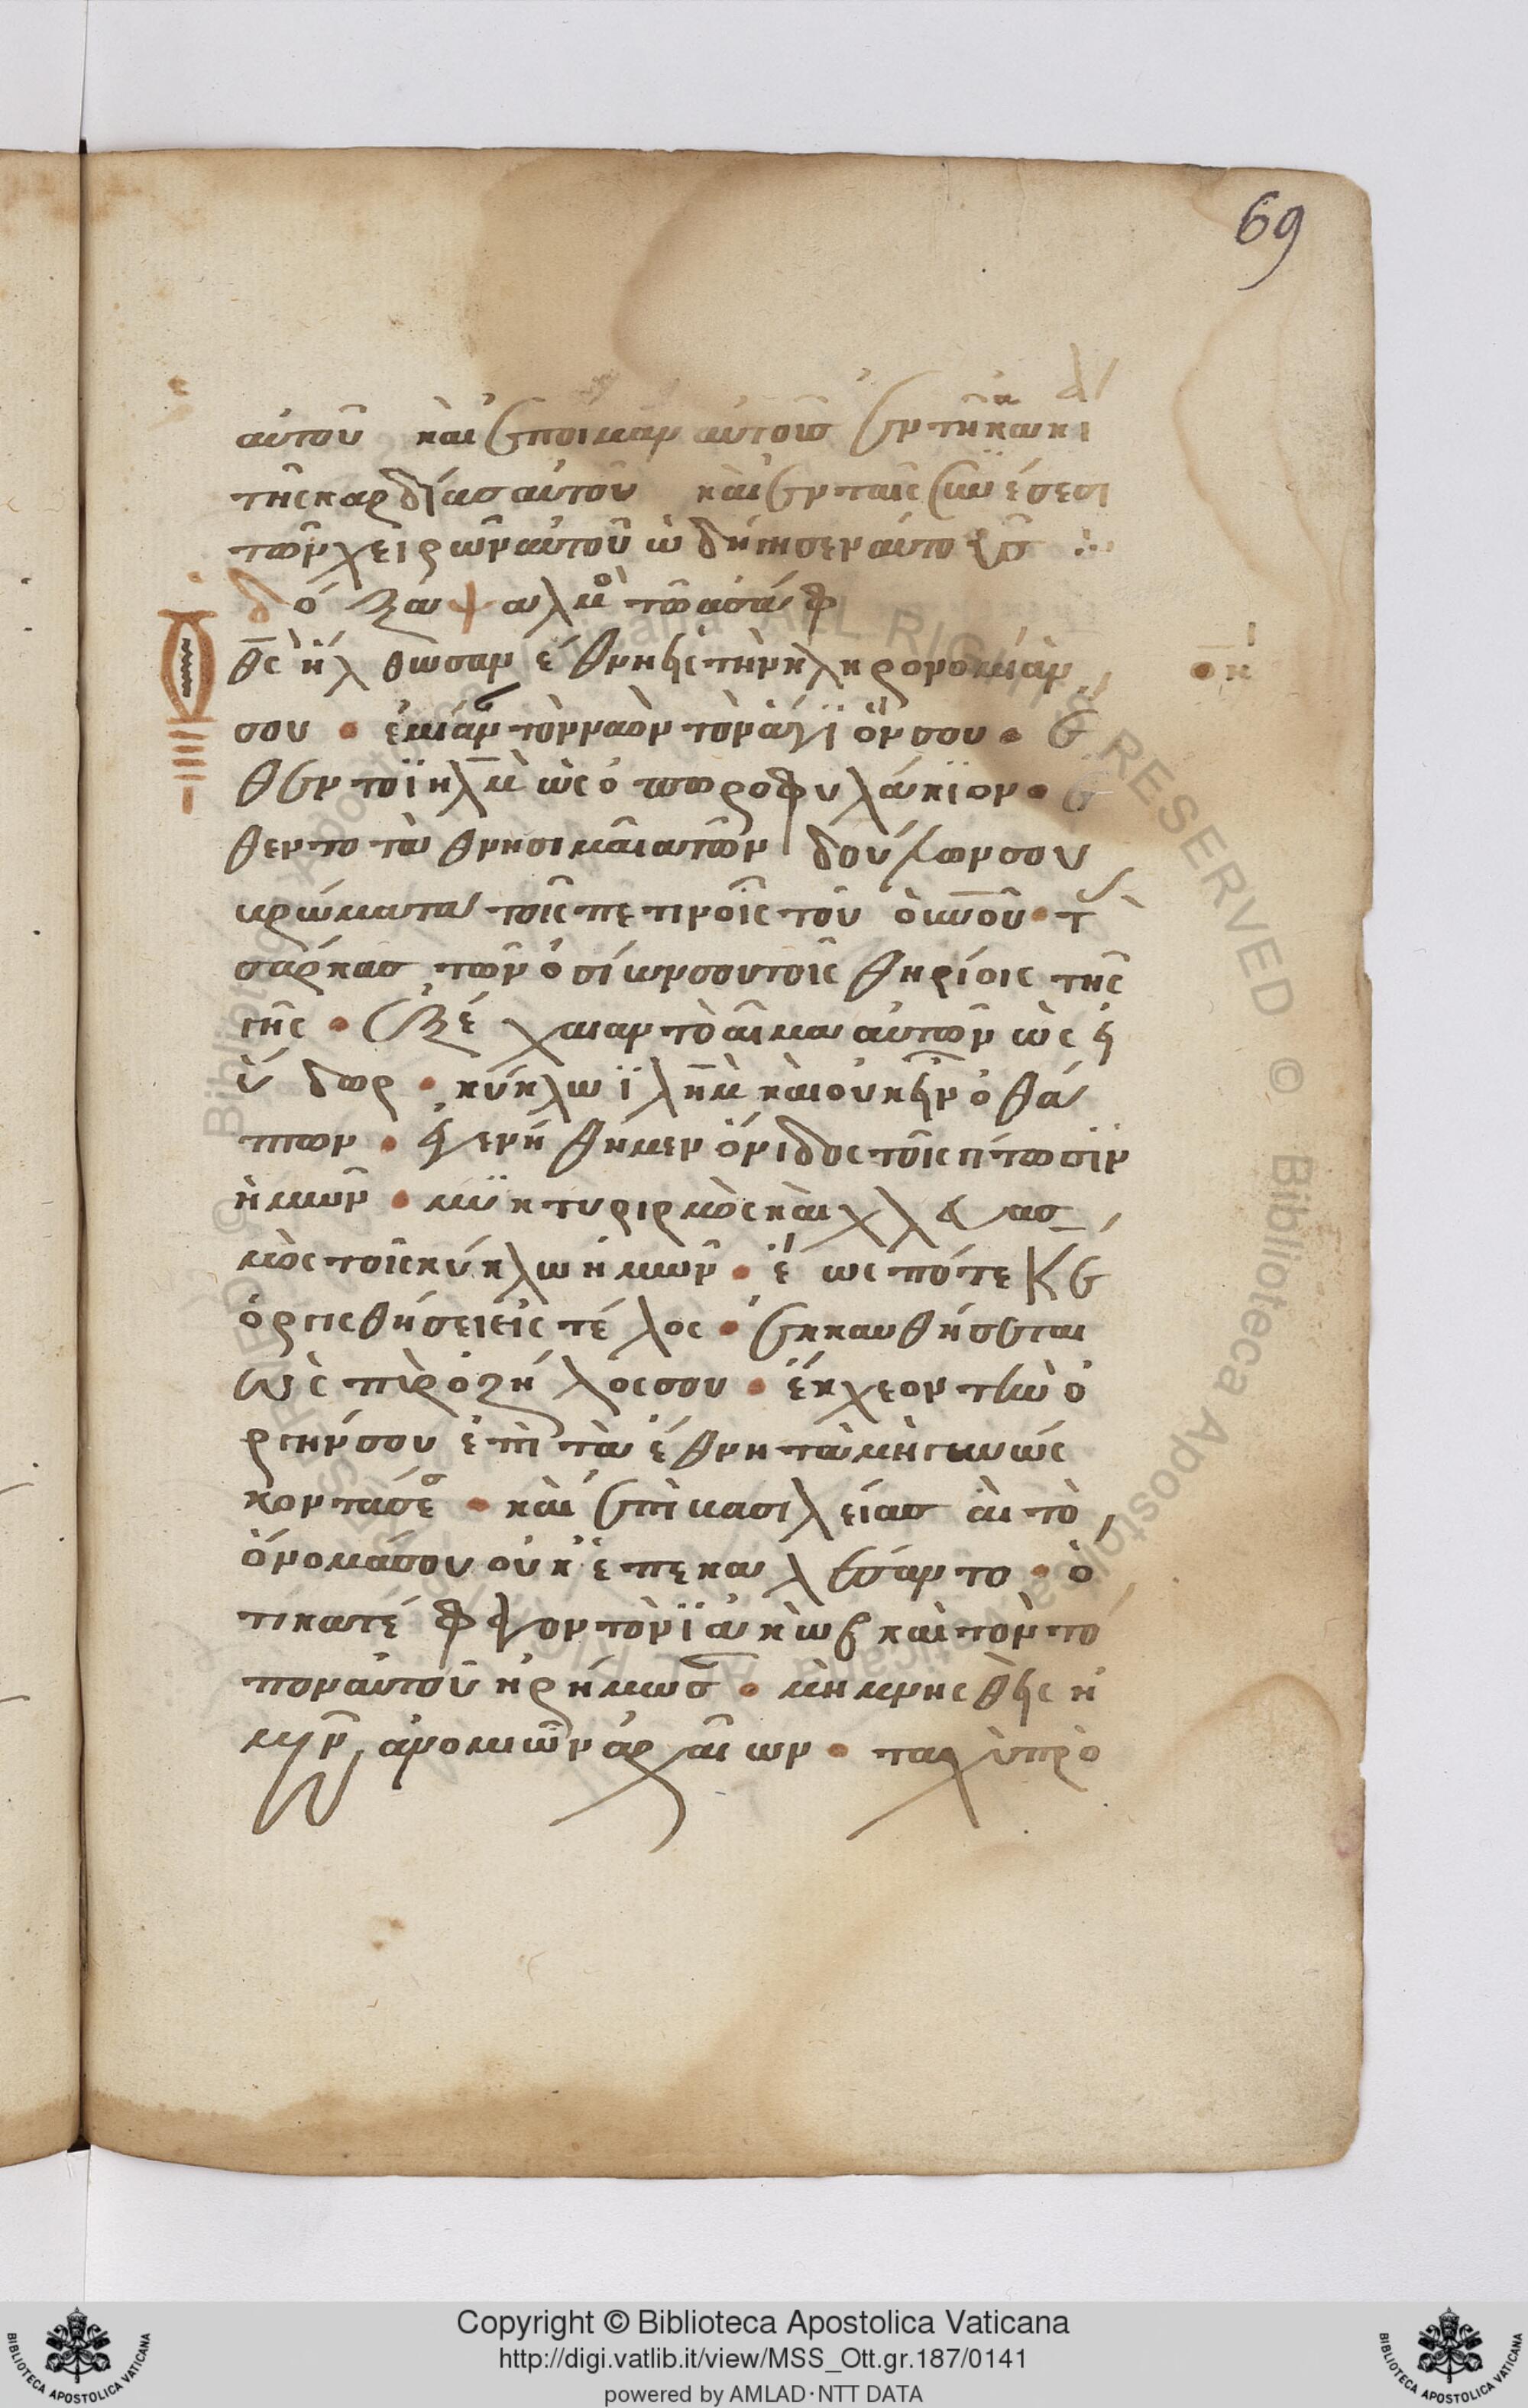 69
αὐτοῦ καὶ ἐποίμαν αὐτοὺς ἐν τῇ ἀκακί
τῆς καρδίας αὐτοῦ καὶ ἐν ταῖς συνέσεσι
τῶν χειρῶν αὐτοῦ ὡδήγησεν αὐτούς ⁘
δόξα ψαλμὸ τῶ ἀσάφ
Ο θς ἤλθωσαν ἔθνη εἰς τὴν κληρονομίαν
οη
σου • ἐμίαν τὸν ναὸν τὸν ἅγϊόν σου • ἔ
θεντο ϊηλμ ὡς ὀπωροφυλάκϊον • ἔ
θεντο τὰ θνησιμαῖα τῶν δούλων σου
βρώματα τοῖς πετινοῖς τοῦ οὐνοῦ • τ
σάρκας τῶν ὁσίων σου τοῖς θηρίοις τῆς
γῆς • ἐξέχααν τὸ αἷμα αὐτῶν ὡς εἰ
ὕδωρ • κύκλω ϊλημ καὶ οὐκ εἶν ὁ θά
πτων • ἐγενήθημεν ὄνιδος τοῖς γίτωσϊν
ἡμῶν • μϋκτυριρμὸς καὶ χλευασ
μὸς τοῖς κύκλω ἡμῶν • ἕως πότε κε
ὀργισθήσει εἰς τέλος • ἐκκαυθήσεται
ὡς πῦρ ὁ ζήλος σου • ἔκχεον τὴν ὀ
ργήν σου ἐπὶ τὰ ἔθνη τὰ μὴ γινώς
κοντά σε • καὶ ἐπὶ βασιλείας αἱ τὸ
ὄνομά σου οὐκ ἐπεκαλέσαντο • ὅ
τι κατέφαγον τὸν ϊακὼβ καὶ τὸν τό
πον αὐτοῦ ἠρήμωσ • μὴ μνησθεὶς ἡ
μῶν ἀνομιῶν ἀρχαίων • ταχὺ προ
Copyright © Biblioteca Apostolica Vaticana
http://digi.vatlib.it/view/MSS_Ott.gr.187/0141
powered by AMLAD·NTT DATA